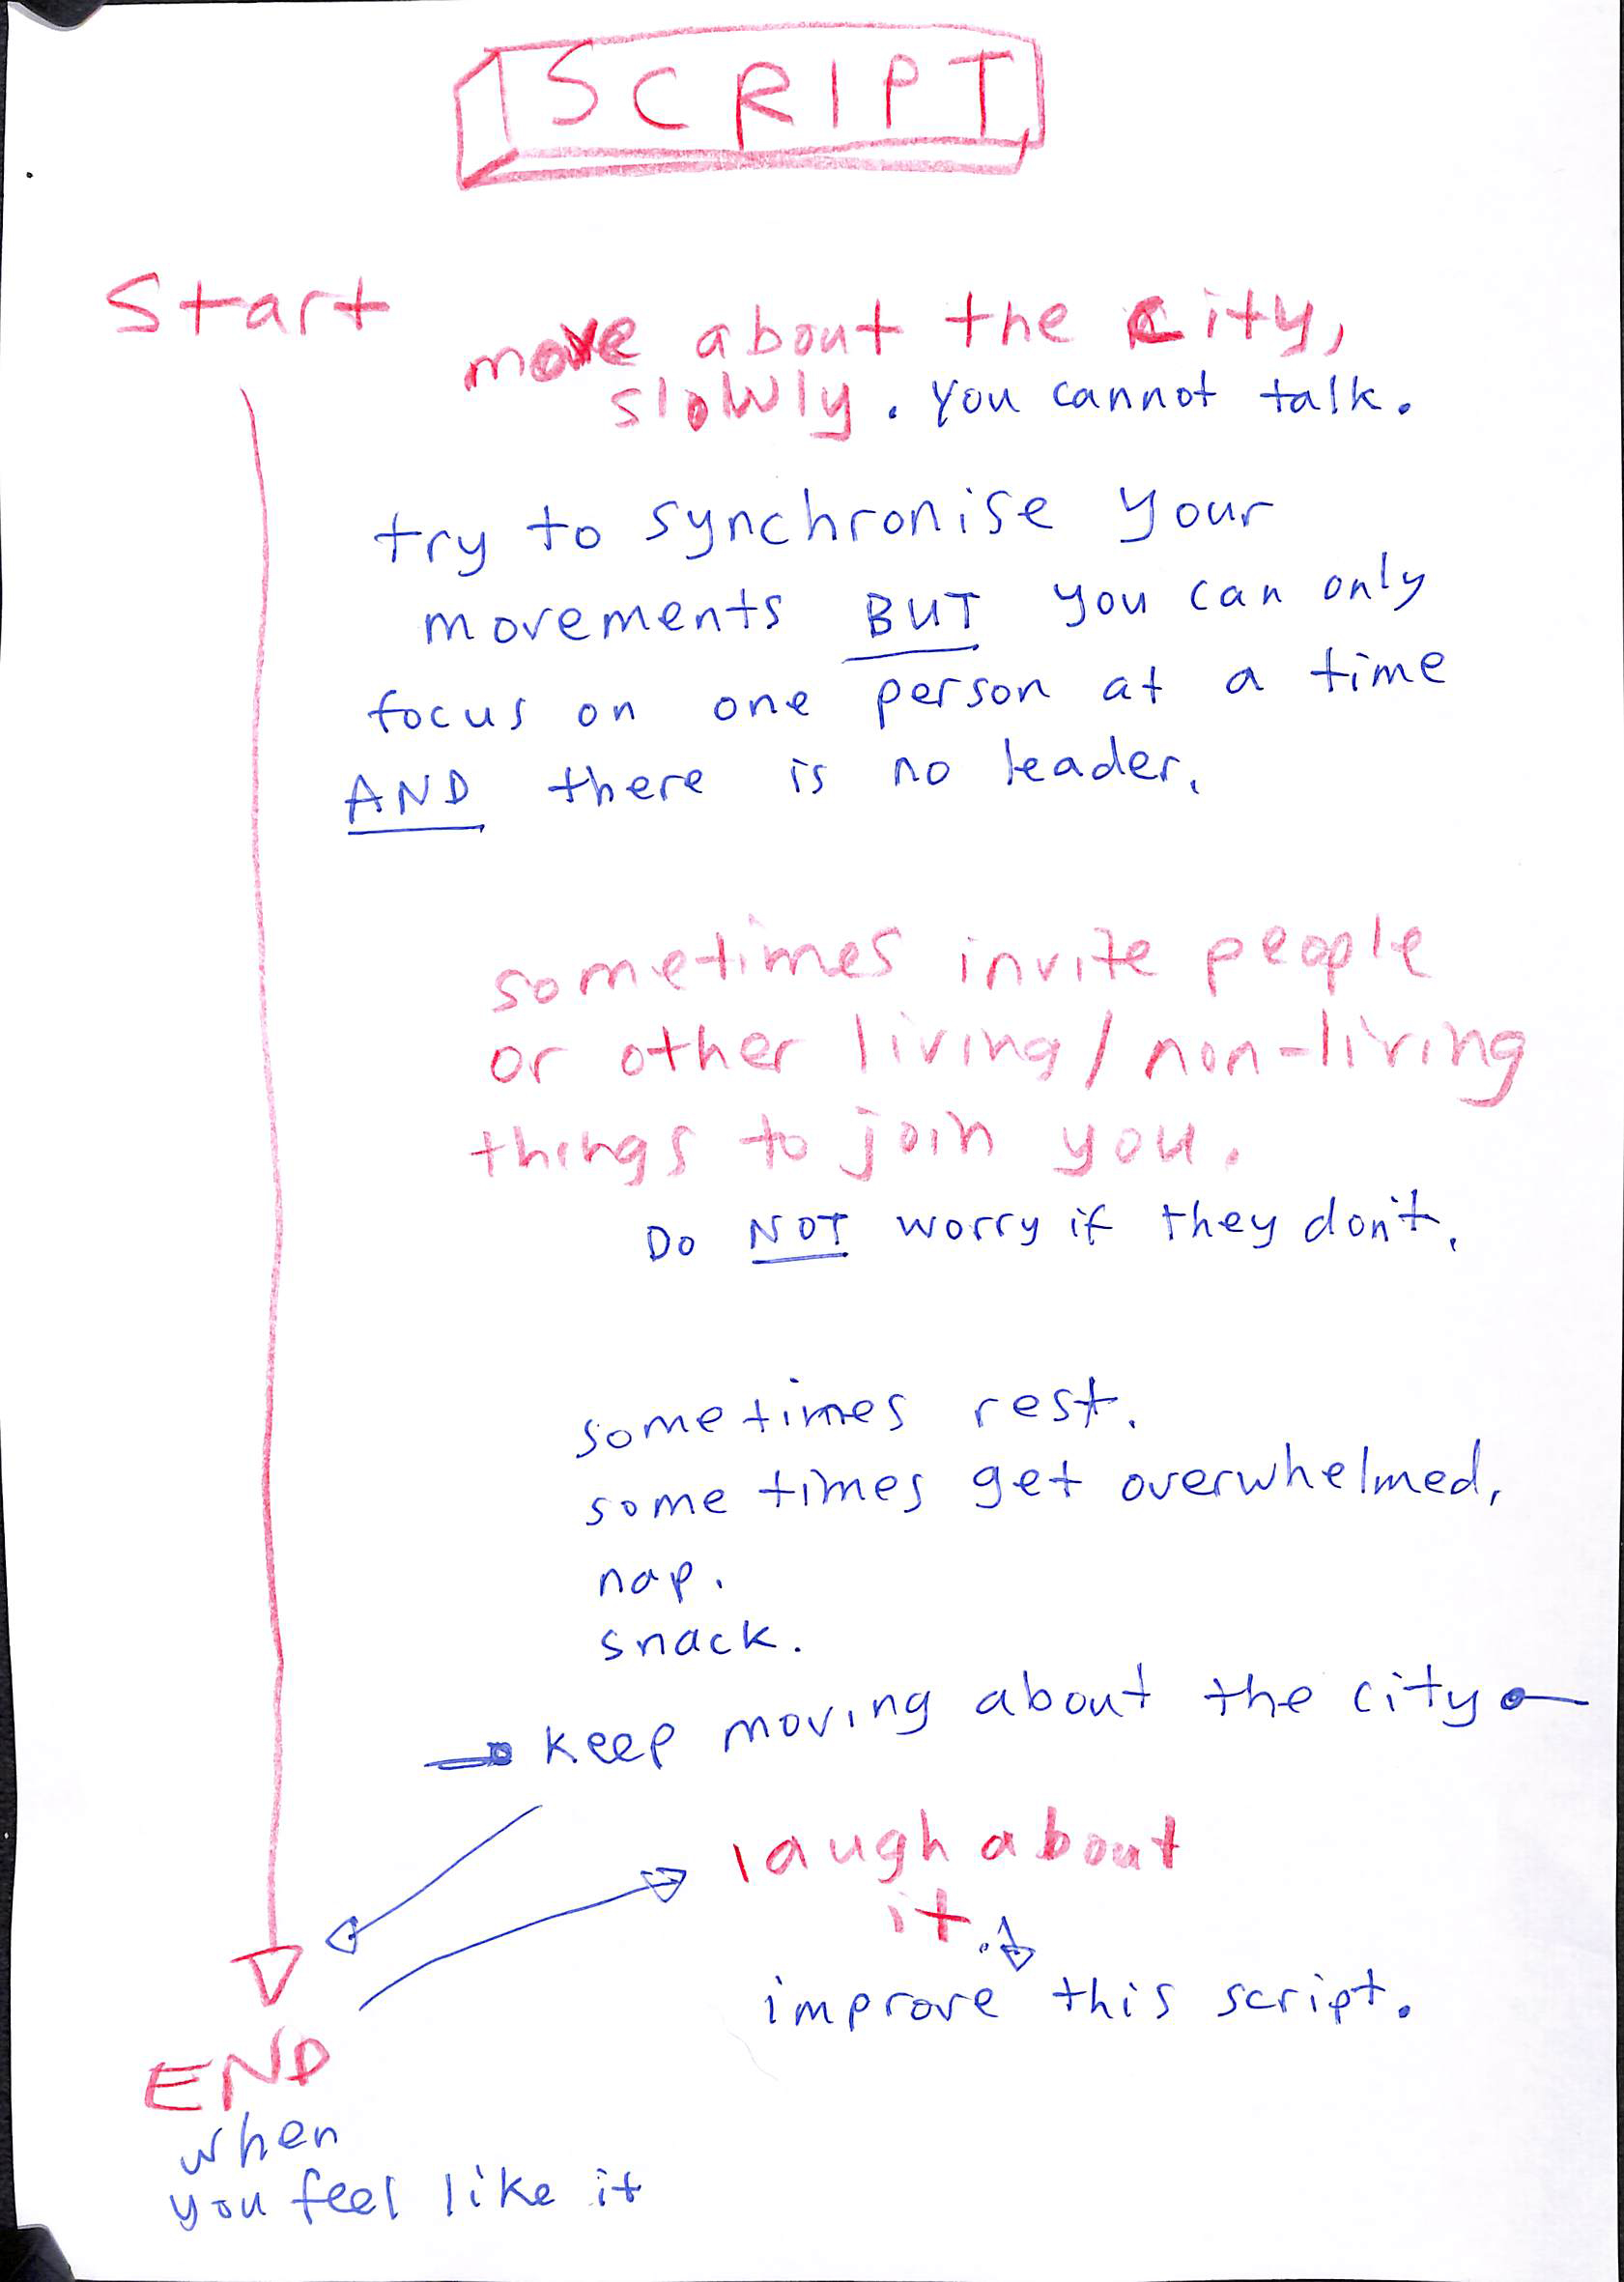 SCRIPT
Start
move about the city,
slowly. You cannot talk.
try to synchronise your
movements BUT you can only
focus on one person at a time
AND there is no leader.
sometimes invite people
or other living/non-living
things to join you.
Do NOT worry if they don't.
sometimes rest.
sometimes get overwhelmed,
nap.
snack.
keep moving about the city
laugh about
it.
improve this script.
END
when
you feel like it